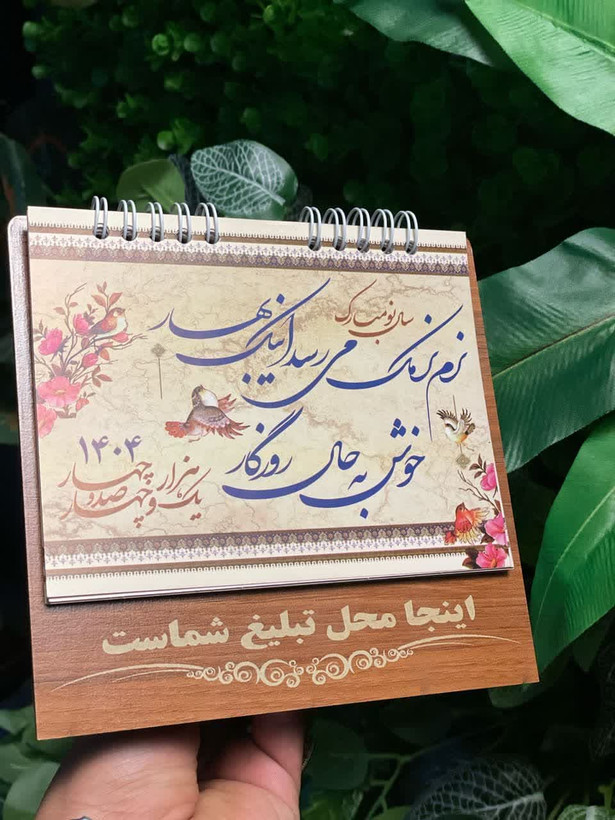 سال نو مبارک
نرم نرمک می رسد اینک بهار
خوش به حال روزگار
۱۴۰۴
یک هزار و چهارصد و چهار
اینجا محل تبلیغ شماست